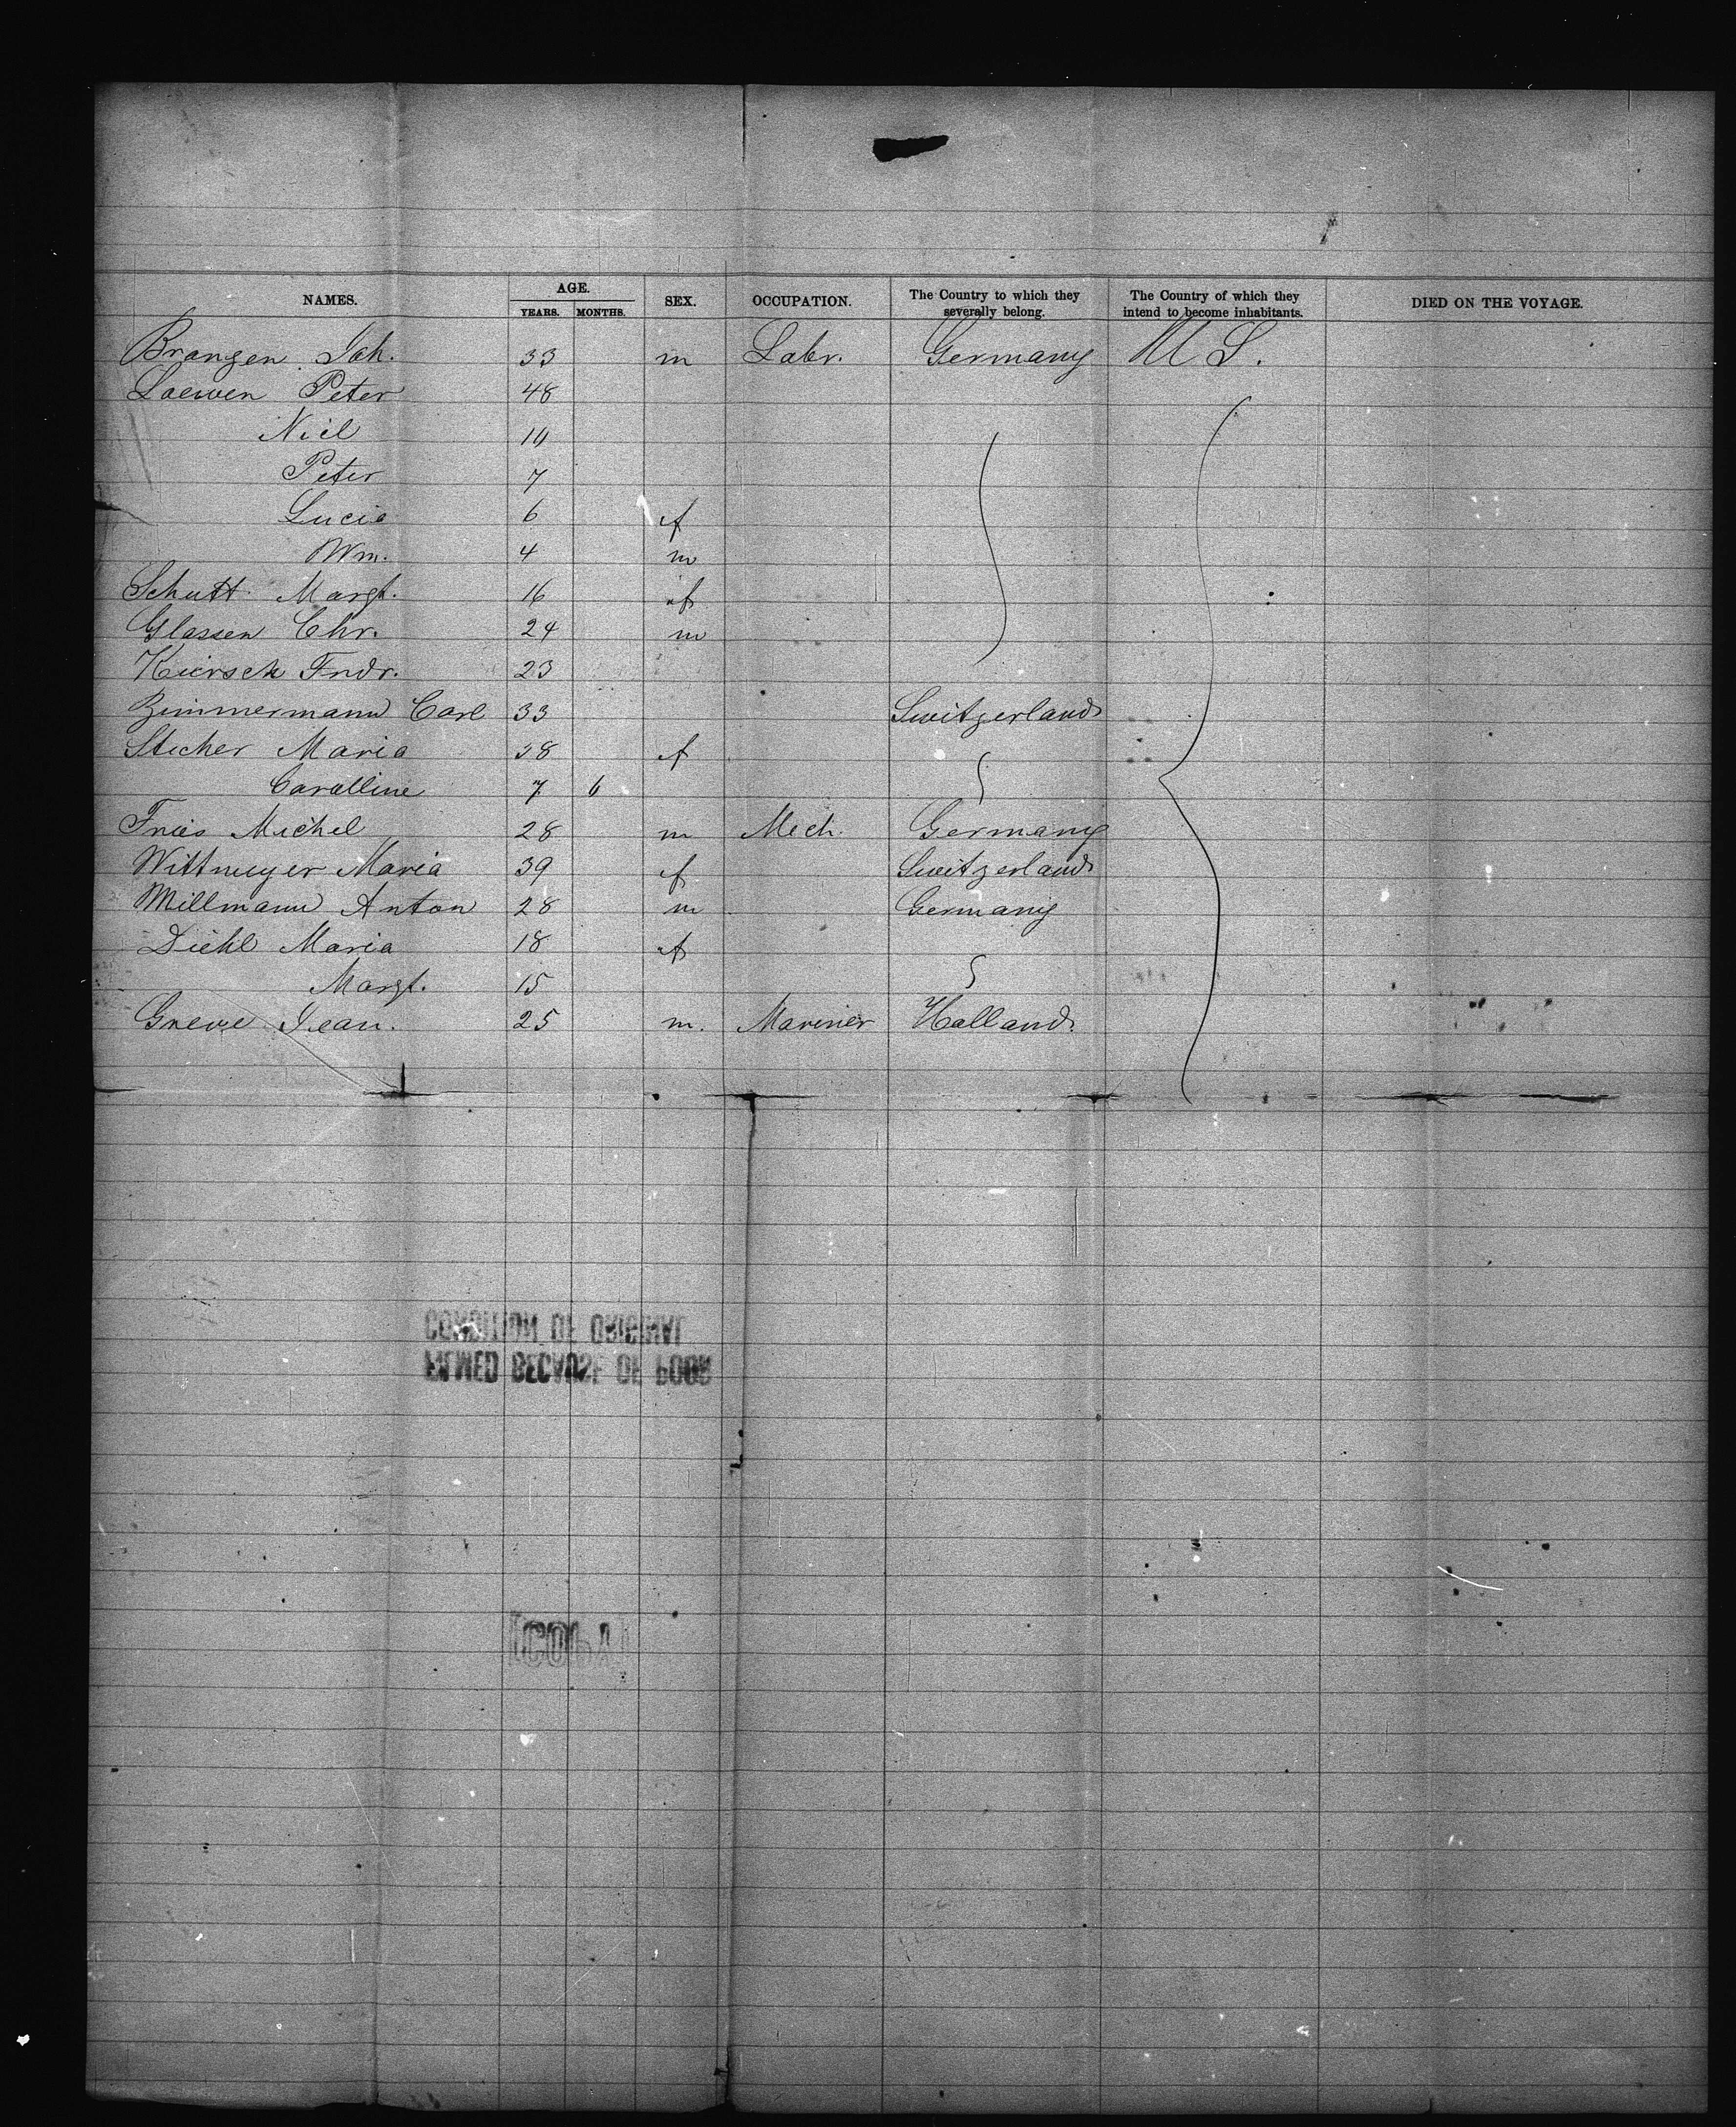 NAMES. AGE. SEX. OCCUPATION. The Country to which they severally belong. The Country of which they intend to become inhabitants. DIED ON THE VOYAGE.
YEARS. MONTHS.
Branzen Joh. 33 m Labr. Germany U S.
Loewen Peter 48
Niel
Peter 7
Lucia 6 f
Wm. 4 m
Schutt Margt. 16 f
Glassen Chr. 24 m
Kiersch Fridr. 23
Zimmermann Carl 33 Switzerland
Sticher Maria 38 f
Caralline 7 6
Fries Michel 28 m Mech. Germany
Wittmeyer Maria 39 f Switzerland
Millmann Anton 28 m Germany
Diehl Maria 18 f
Margt. 15
Greve Jean. 25 m. Mariner Holland
CONDITION OF ORIGINAL
FILMED BECAUSE OF POOR